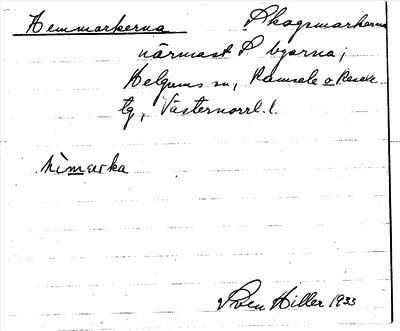 Hemmarkerna Skogsmarkerna
närmast P byarna,
Helgums sn, Ramsele o Resele
tg, Västernorrl. l.
hìmarka
Sven Hiller 1933